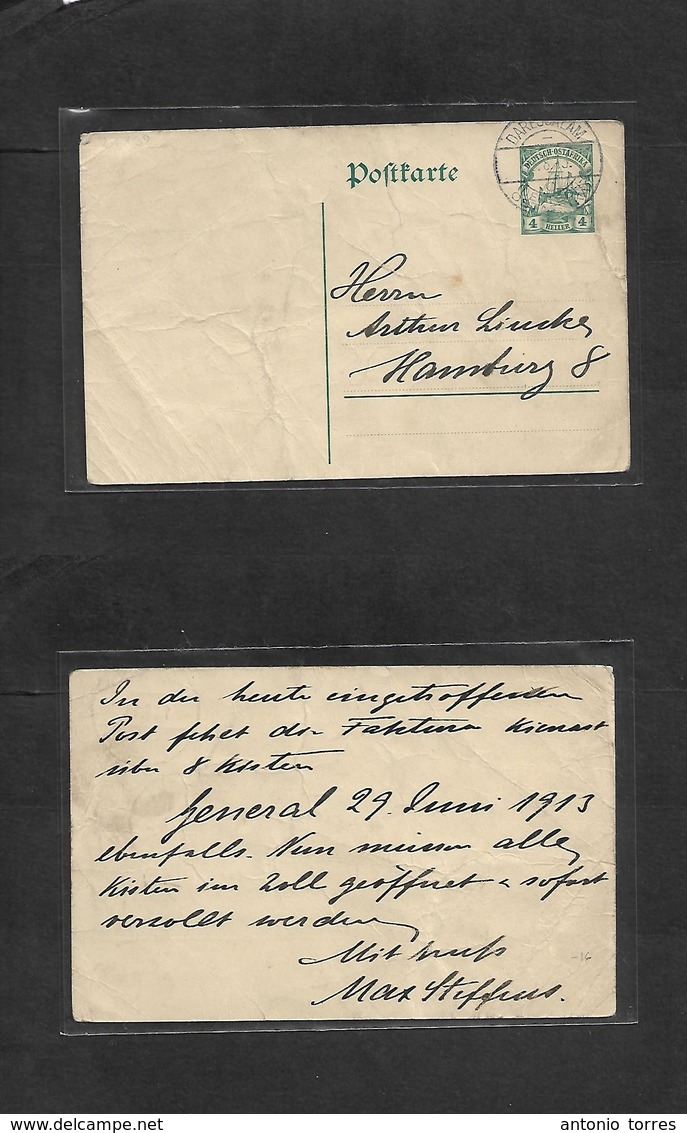 Postkarte
DARESSALAM
DEUTSCH-OSTAFRIKA
4 HELLER 4
Herrn
Arthur Lincke
Hamburg 8
In der heute eingetroffenen
Post fehlt die Faktura Kienast
über 8 Kisten
General 29. Juni 1913
ebenfalls. Nun müssen alle
Kisten im Zoll geöffnet u sofort
verzollt werden
Mit Gruß
Max Steffens.
-16
antonio torres